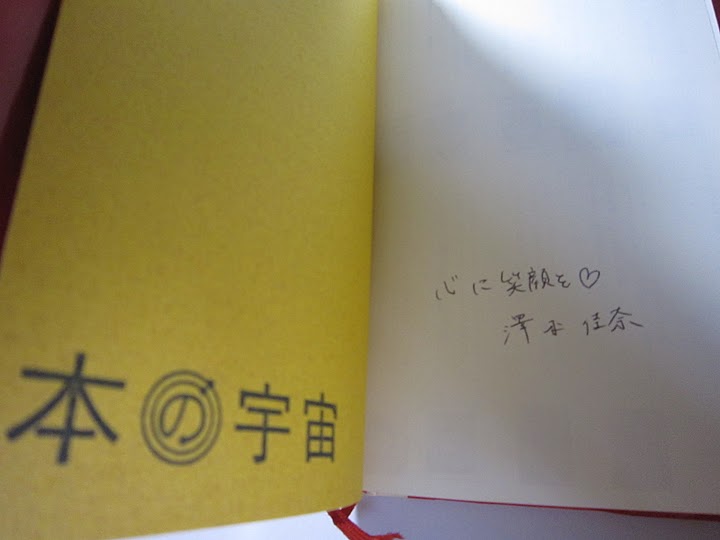 本の宇宙
心に笑顔を♡
澤平佳奈